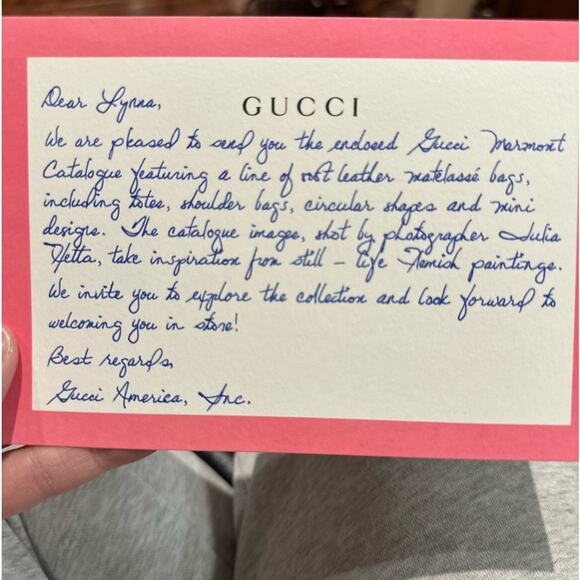 GUCCI
Dear Lynna,
We are pleased to send you the enclosed Gucci Marmont
Catalogue featuring a line of soft leather matelassé bags,
including totes, shoulder bags, circular shapes and mini
designs. The catalogue images, shot by photographer Julia
Hetta, take inspiration from still - life Flemish paintings.
We invite you to explore the collection and look forward to
welcoming you in store!
Best regards,
Gucci America, Inc.